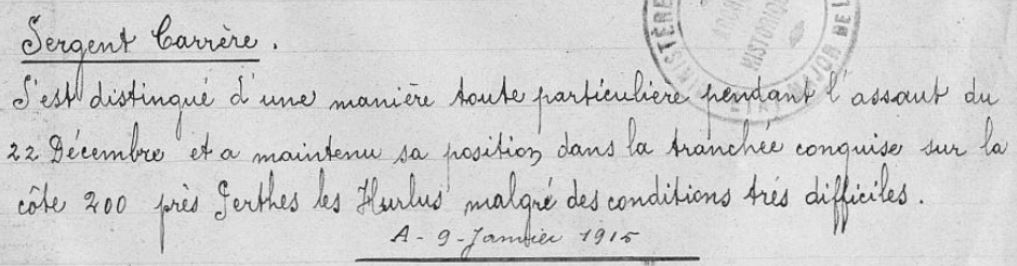 Sergent Carrère.
S'est distingué d'une manière toute particulière pendant l'assaut du
22 Décembre et a maintenu sa position dans la tranchée conquise sur la
côte 200 près Perthes les Hurlus malgré des conditions très difficiles.
A - 9 - Janvier 1915